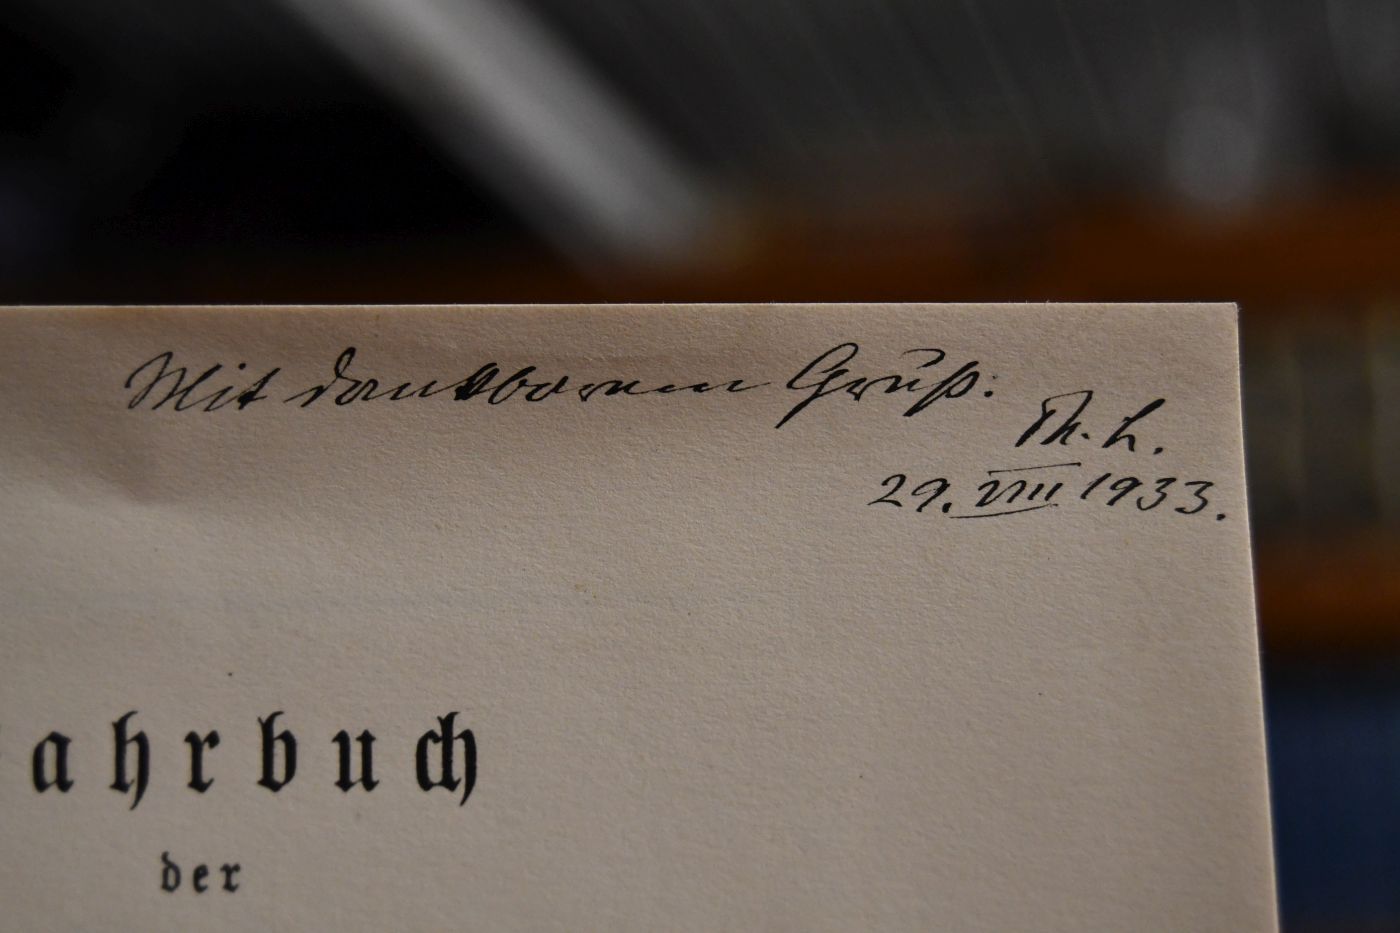 Mit dankbarem Gruß.
Th. L.
29. VIII 1933.
ahrbuch
der